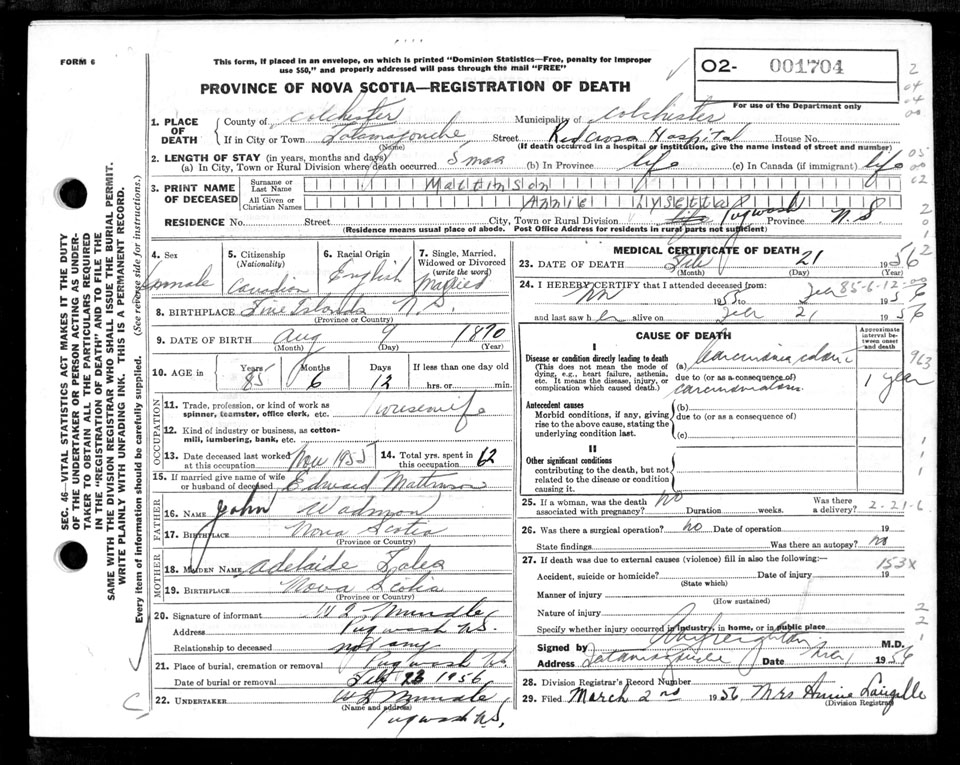 FORM 6
This form, if placed in an envelope, on which is printed "Dominion Statistics—Free, penalty for improper
use $50," and properly addressed will pass through the mail "FREE"
O2- 001704
For use of the Department only
PROVINCE OF NOVA SCOTIA—REGISTRATION OF DEATH
1. PLACE OF DEATH
County of Colchester Municipality of Colchester
If in City or Town Tatamagouche Street Red Cross Hospital House No.
(Name) (If death occurred in a hospital or institution, give the name instead of street and number)
2. LENGTH OF STAY (in years, months and days)
(a) In City, Town or Rural Division where death occurred 5 mos (b) In Province life (c) In Canada (if immigrant) life
3. PRINT NAME OF DECEASED
Surname or Last Name Mattinson
All Given or Christian Names Annie Lysetta
RESIDENCE No. Street City, Town or Rural Division Pugwash Province N.S.
(Residence means usual place of abode. Post Office Address for residents in rural parts not sufficient)
4. Sex Female
5. Citizenship (Nationality) Canadian
6. Racial Origin English
7. Single, Married, Widowed or Divorced (write the word) Married
8. BIRTHPLACE Five Islands N.S.
(Province or Country)
9. DATE OF BIRTH Aug 9 1870
(Month) (Day) (Year)
10. AGE in Years 85 Months 6 Days 12 If less than one day old
hrs. or min.
OCCUPATION
11. Trade, profession, or kind of work as spinner, teamster, office clerk, etc. Housewife
12. Kind of industry or business, as cotton-mill, lumbering, bank, etc.
13. Date deceased last worked at this occupation Nov 1955
14. Total yrs. spent in this occupation 62
15. If married give name of wife or husband of deceased Edward Mattinson
FATHER
16. NAME John Wadmon
17. BIRTHPLACE Nova Scotia
(Province or Country)
MOTHER
18. MAIDEN NAME Adelaide
19. BIRTHPLACE Nova Scotia
(Province or Country)
20. Signature of informant
Address Pugwash N.S.
Relationship to deceased not any
21. Place of burial, cremation or removal Pugwash N.S.
Date of burial or removal Feb 23 1956
22. UNDERTAKER
(Name and address)
Pugwash N.S.
MEDICAL CERTIFICATE OF DEATH
23. DATE OF DEATH Feb 21 1956
(Month) (Day) (Year)
24. I HEREBY CERTIFY that I attended deceased from:
Nov 1955 to Feb 1956
85-6-12
and last saw her alive on Feb 21 1956
CAUSE OF DEATH
Approximate interval between onset and death
I
Disease or condition directly leading to death
(This does not mean the mode of dying, e.g., heart failure, asthenia, etc. It means the disease, injury, or complication which caused death.)
(a) Carcinoma colon
due to (or as a consequence of) carcinomatosis 1 year
963
Antecedent causes
Morbid conditions, if any, giving rise to the above cause, stating the underlying condition last.
(b)
due to (or as a consequence of)
(c)
II
Other significant conditions
contributing to the death, but not related to the disease or condition causing it.
25. If a woman, was the death associated with pregnancy? no Duration weeks. Was there a delivery?
2-21-6
26. Was there a surgical operation? no Date of operation 19
State findings Was there an autopsy? no
27. If death was due to external causes (violence) fill in also the following:—
153X
Accident, suicide or homicide? Date of injury 19
(State which)
Manner of injury
(How sustained)
Nature of injury
Specify whether injury occurred in industry, in home, or in public place
Signed by M.D.
Address Tatamagouche Date 1956
28. Division Registrar's Record Number
29. Filed March 2nd 1956 Mrs Annie Langille
(Division Registrar)
SEC. 46—VITAL STATISTICS ACT MAKES IT THE DUTY
OF THE UNDERTAKER OR PERSON ACTING AS UNDER-
TAKER TO OBTAIN ALL THE PARTICULARS REQUIRED
IN THE "REGISTRATION OF DEATH" AND TO FILE THE
SAME WITH THE DIVISION REGISTRAR WHO SHALL ISSUE THE BURIAL PERMIT.
WRITE PLAINLY WITH UNFADING INK. THIS IS A PERMANENT RECORD.
Every item of information should be carefully supplied. (See reverse side for instructions.)